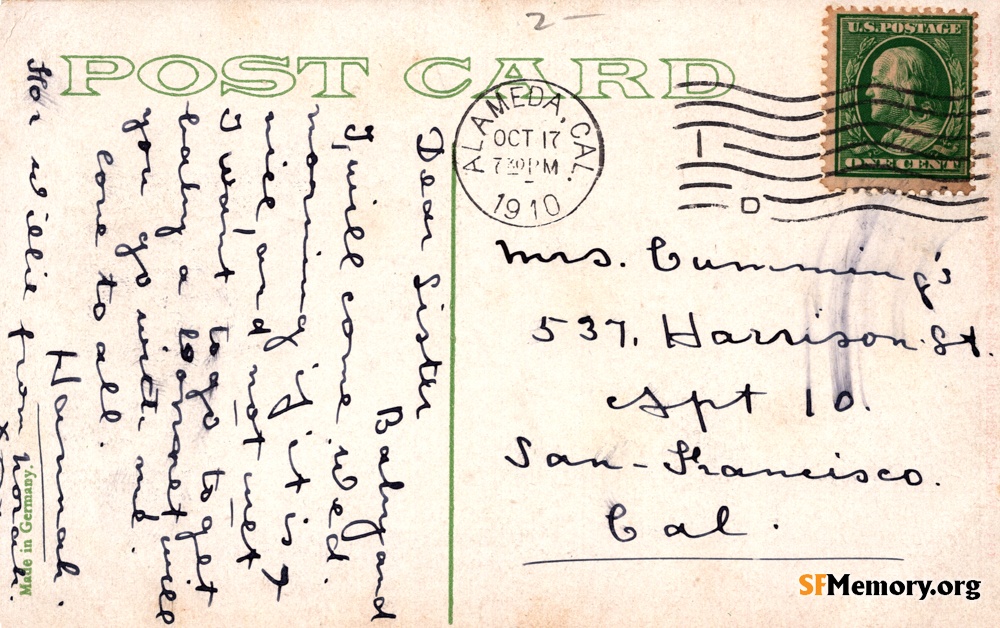 2 -
POST CARD
U.S. POSTAGE
ONE CENT
ALAMEDA, CAL.
OCT 17
7 30 PM
1910
Dear Sister
Baby and
I, will come Wed.
morning if it is
nice, and not wet
I want to go to get
baby a bonnet will
you go with me.
love to all.
Hannah.
For Willie from
Mrs. Cumming's
537, Harrison St.
Apt 10.
San-Francisco.
Cal.
Made in Germany.
SFMemory.org